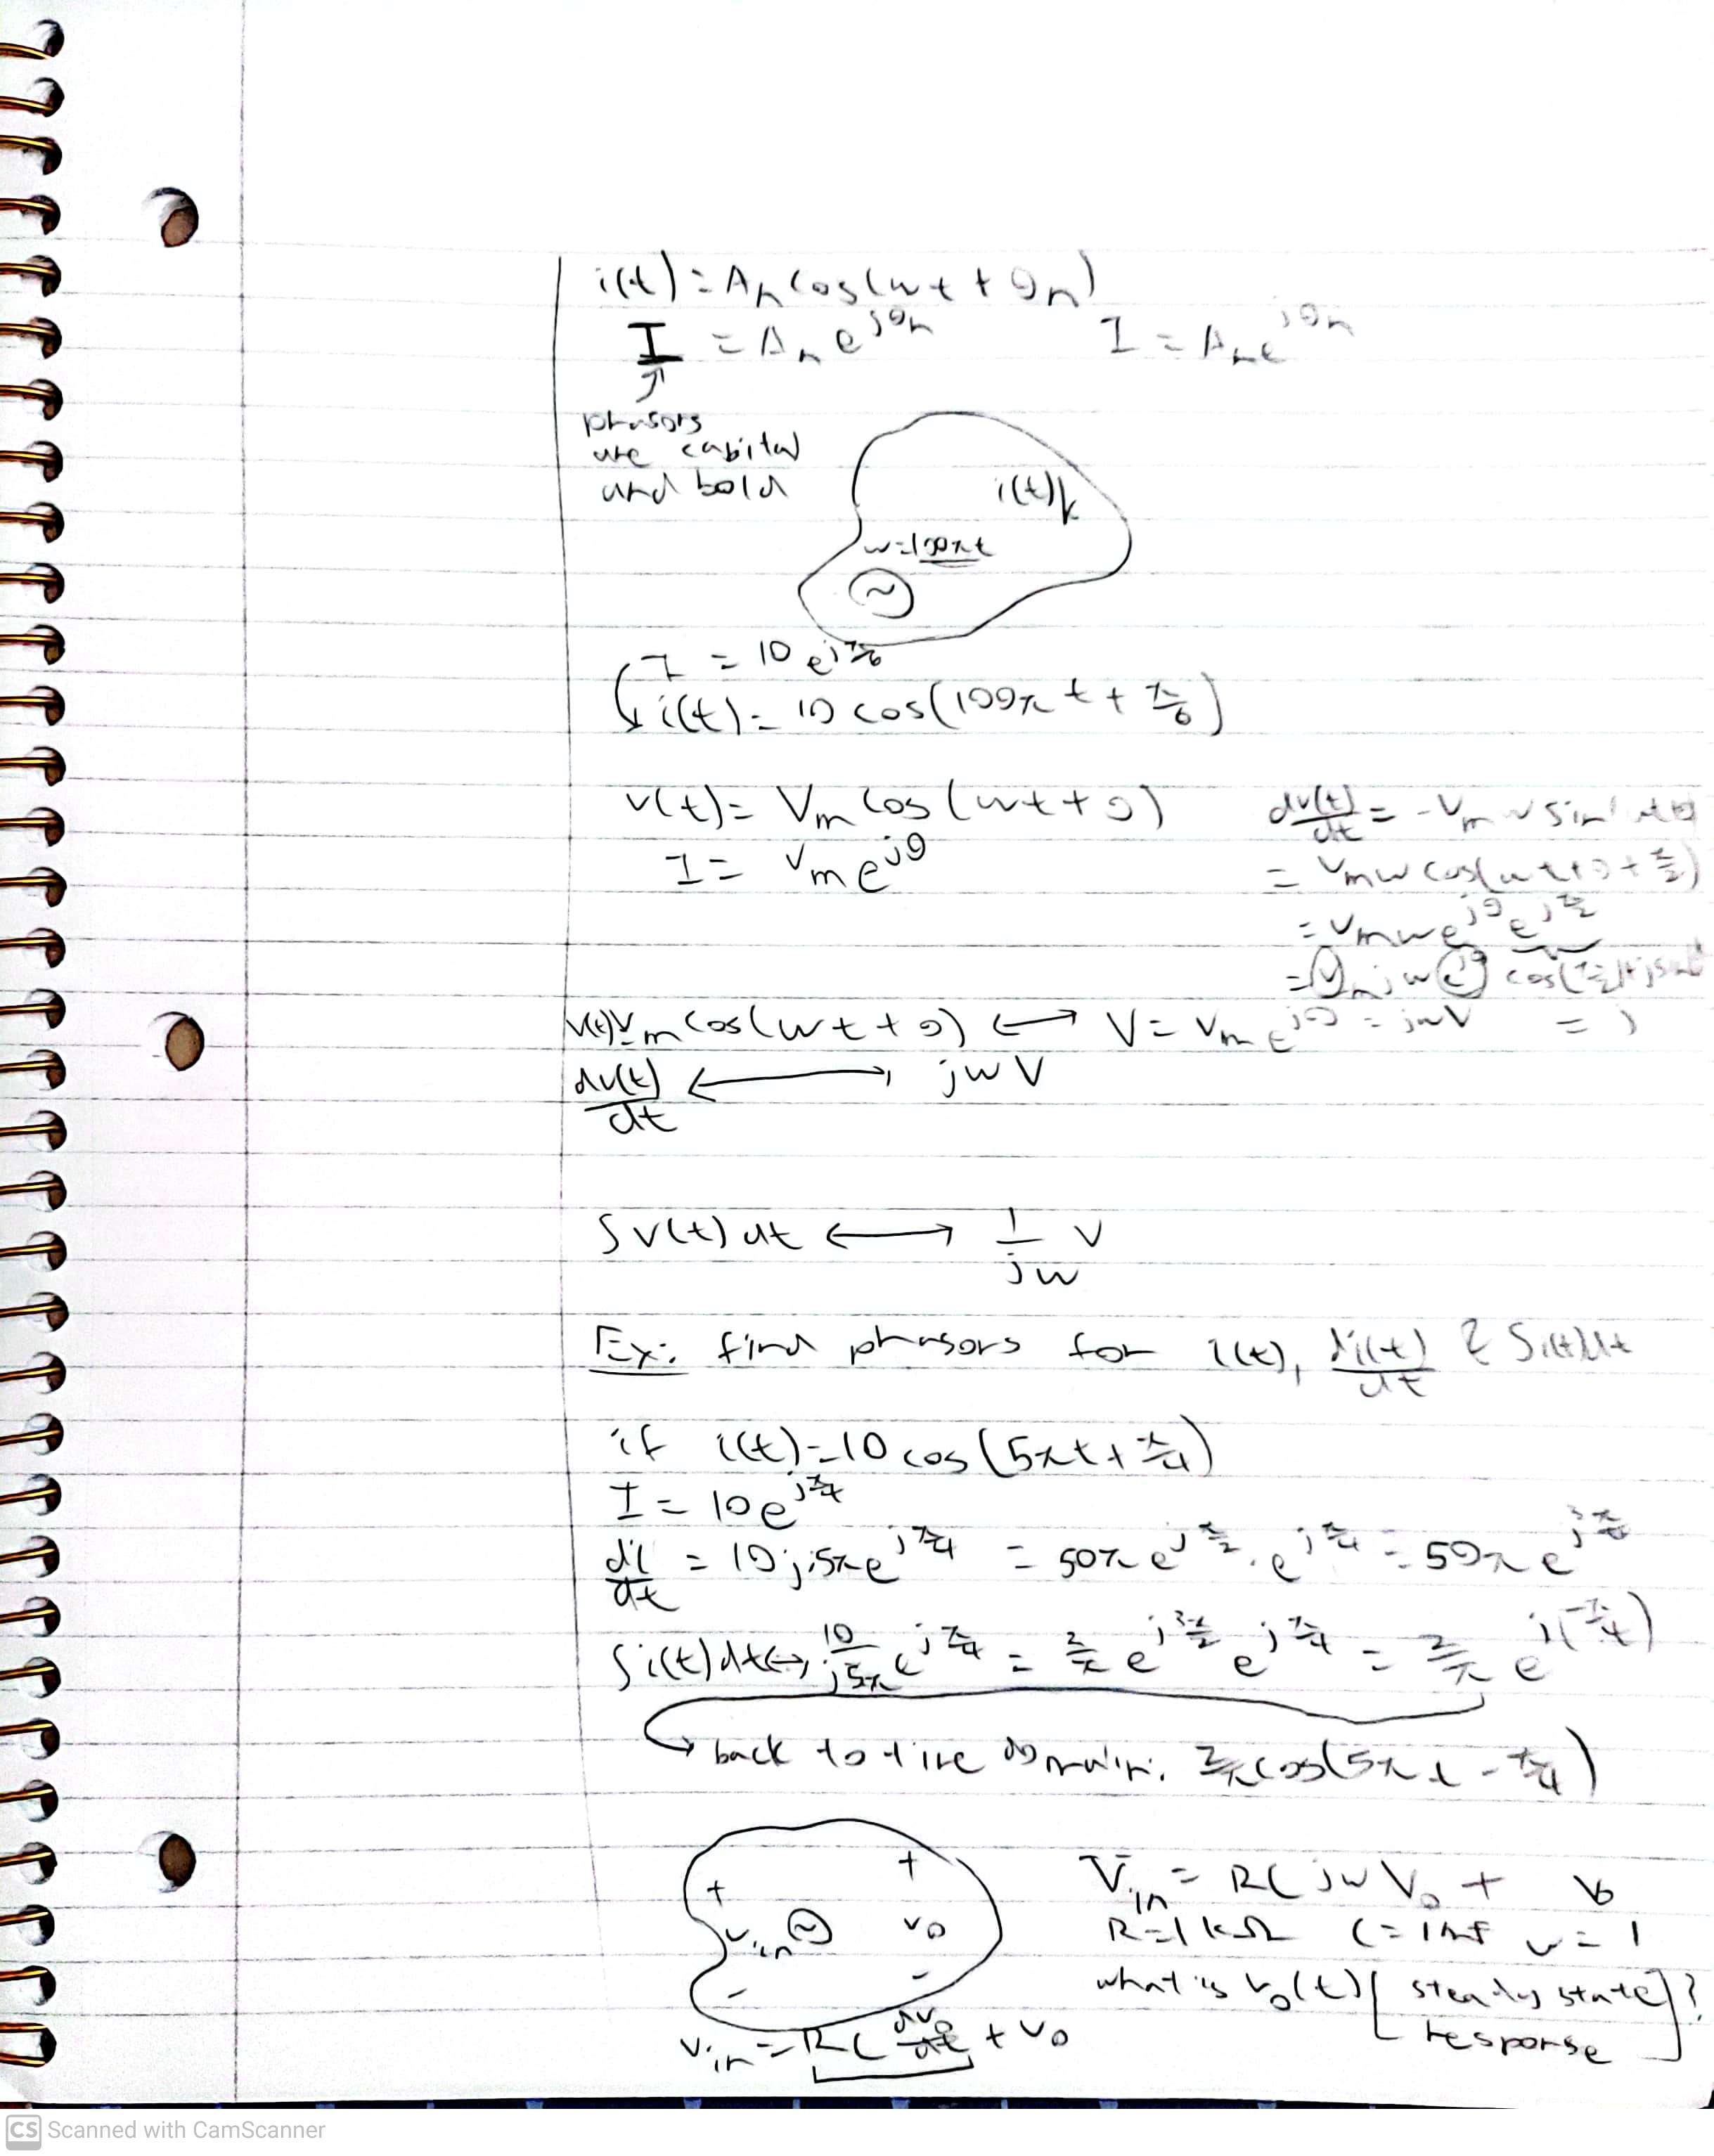 i(t) = Am cos(wt + θm)
I = Am e^jθm    I = Am e^jθm
phasors
are capital
and bold
i(t)
w=100πt
~
I = 10 e^jπ/6
i(t) = 10 cos(100πt + π/6)
v(t) = Vm cos(wt + θ)    dv(t)/dt = -Vm w sin(wt+θ)
I = Vm e^jθ    = Vm w cos(wt+θ+π/2)
= Vm w e^jθ e^jπ/2
= Vm jw e^jθ cos(π/2)+jsin
v(t)=Vm cos(wt + θ) ↔ V = Vm e^jθ = jwV = j
dv(t)/dt ↔ jwV
∫v(t)dt ↔ 1/jw V
Ex: find phasors for i(t), di(t)/dt & ∫i(t)dt
if i(t)=10 cos(5πt + π/4)
I = 10e^jπ/4
di/dt = 10j·5πe^jπ/4 = 50π e^jπ/2 · e^jπ/4 = 50π e^j3π/4
∫i(t)dt ↔ 10/j5π e^jπ/4 = 2/π e^j3π/2 e^jπ/4 = 2/π e^j(-π/4)
back to time domain: 2/π cos(5πt - π/4)
+ vin ~ -
+ vo -
vin = RC dvo/dt + vo
Vin = RC jw Vo + Vo
R=1kΩ C=1mF w=1
what is vo(t) [steady state]?
response
CS Scanned with CamScanner